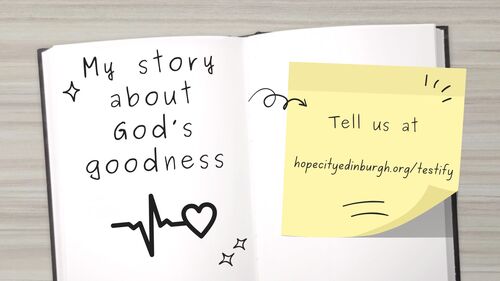 My story
about
God's
goodness
Tell us at
hopecityedinburgh.org/testify